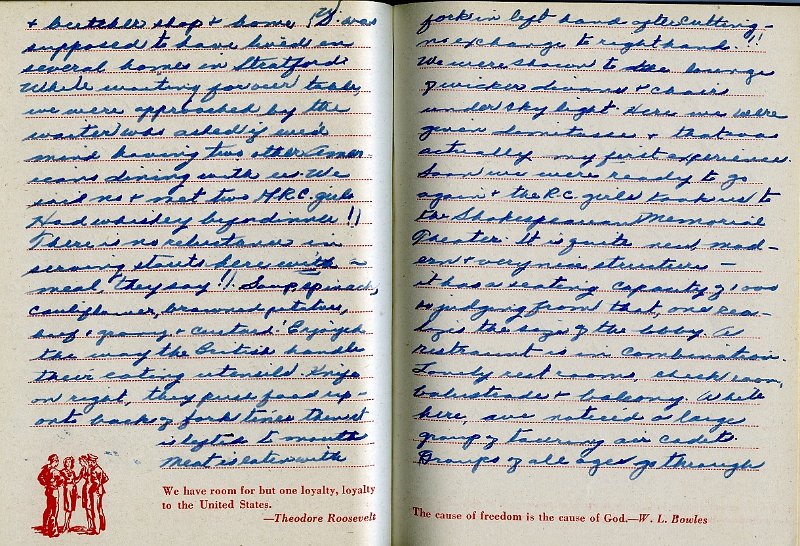 + butcher shop + home (24) was
supposed to have lived in
several homes in Stratford.
While waiting for our table,
we were approached by the
waiter was asked if we'd
mind having two other Amer-
icans dining with us. We
said no + met two ARC girls
Had whiskey before dinner!!
There is no reluctance in
serving spirits here with a
meal they say!! Soup, spinach,
cauliflower, browned potatoes,
beef + gravy + custard. Enjoyed
the way the British handle
their eating utensils. Knife
on right, they push food up-
onto back of fork tines then it
is lifted to mouth
Meat is eaten with
We have room for but one loyalty, loyalty
to the United States.
—Theodore Roosevelt
fork in left hand after cutting –
no exchange to right hand.!!
We were shown to the lounge
of wicker divans + chairs
under sky light. Here we were
given demitasses + that was
actually my first experience.
Soon we were ready to go
again + the RC girls took us to
the Shakespearean Memorial
Theater. It is quite new mod-
ern + very nice structure –
it has a seating capacity of 1000
+ judging from that, one rea-
lizes the size of the lobby. A
restraunt is in combination.
Lovely rest rooms, check room,
balustrades + balcony. While
here, we noticed a large
group of touring air cadets.
Groups of all ages go through
The cause of freedom is the cause of God.—W. L. Bowles